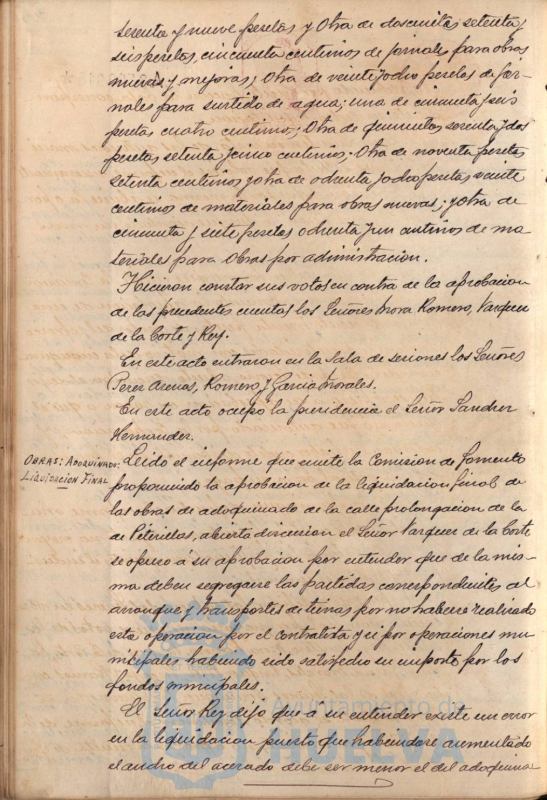 sesenta y nueve pesetas y otra de doscientas setenta y
seis pesetas, cincuenta centimos de jornales para obras
nuevas y mejoras; Otra de veinte y ocho pesetas de jor-
nales para surtido de agua; una de cincuenta y seis
pesetas cuatro centimos; Otra de quinientas sesenta y dos
pesetas setenta y cinco centimos; Otra de noventa pesetas
setenta centimos y otra de ochenta y ocho pesetas veinte
centimos de materiales para obras nuevas; y otra de
cincuenta y siete pesetas ochenta y un centimos de ma-
teriales para obras por administracion.
Hicieron constar sus votos en contra de la aprobacion
de las precedentes cuentas los Señores Mora Romero, Vazquez
de la Corte y Rey.
En este acto entraron en la Sala de sesiones los Señores
Perez Arenas, Romero y Garcia Morales.
En este acto ocupó la presidencia el Señor Sanchez
Hernandez.
OBRAS: ADOQUINADO:
LIQUIDACION FINAL
Leido el informe que emite la Comision de Fomento
proponiendo la aprobacion de la liquidacion final de
las obras de adoquinado de la calle prolongacion de la
de Peterillas, abierta discusion el Señor Vazquez de la Corte
se opuso á su aprobacion por entender que de la mis-
ma deben segregarse las partidas correspondientes al
arranque y transportes de tierras por no haberse realizado
esta operacion por el contratista y si por operaciones mu-
nicipales habiendo sido satisfecho su importe por los
fondos municipales.
El Señor Rey dijo que á su entender existe un error
en la liquidacion puesto que habiendose aumentado
el ancho del acerado debe ser menor el del adoquina-
Ayuntamiento de
HUELVA